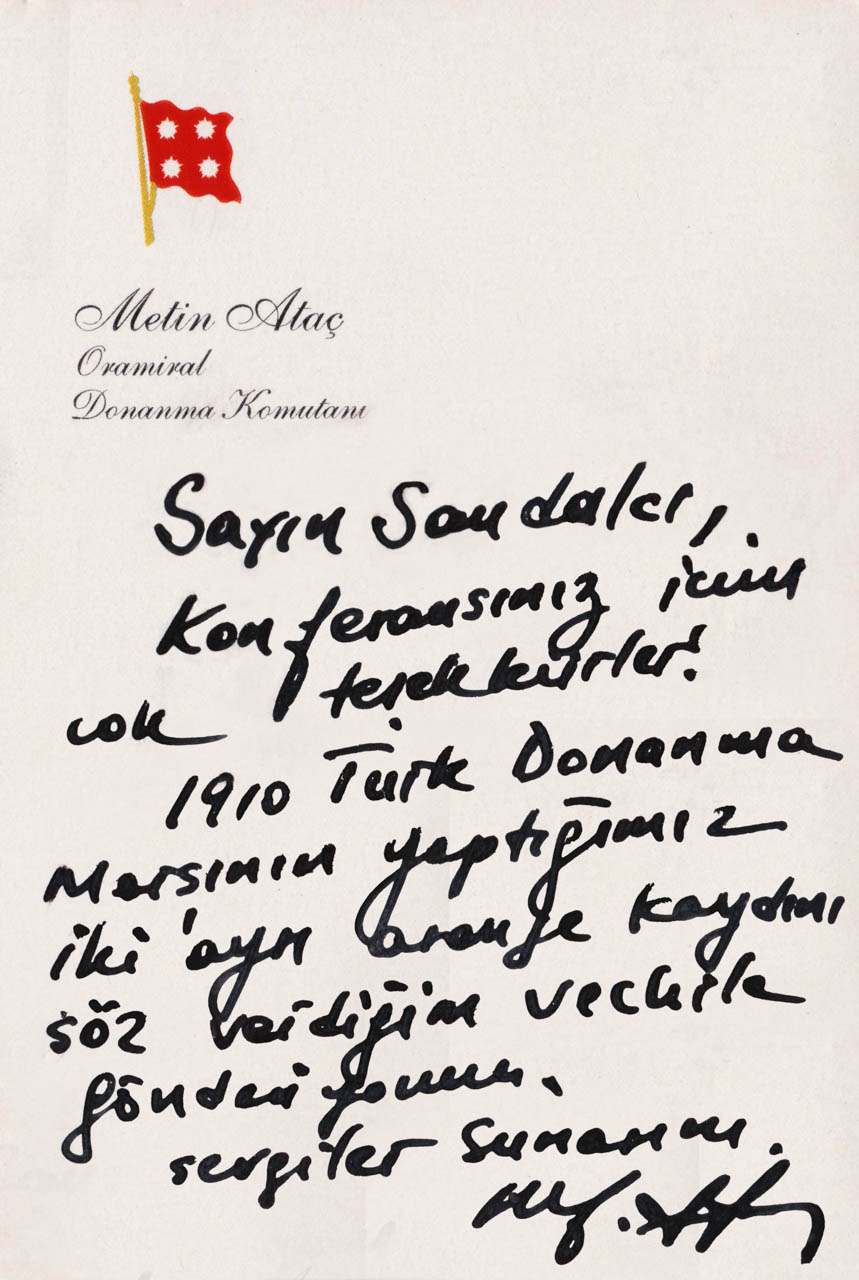 Metin Ataç
Oramiral
Donanma Komutanı
Sayın Sandalcı,
Konferansınız için
çok teşekkürler!
1910 Türk Donanma
Marşının yaptığımız
iki ayrı aranje kaydını
söz verdiğim vechile
gönderiyorum.
saygılar sunarım.